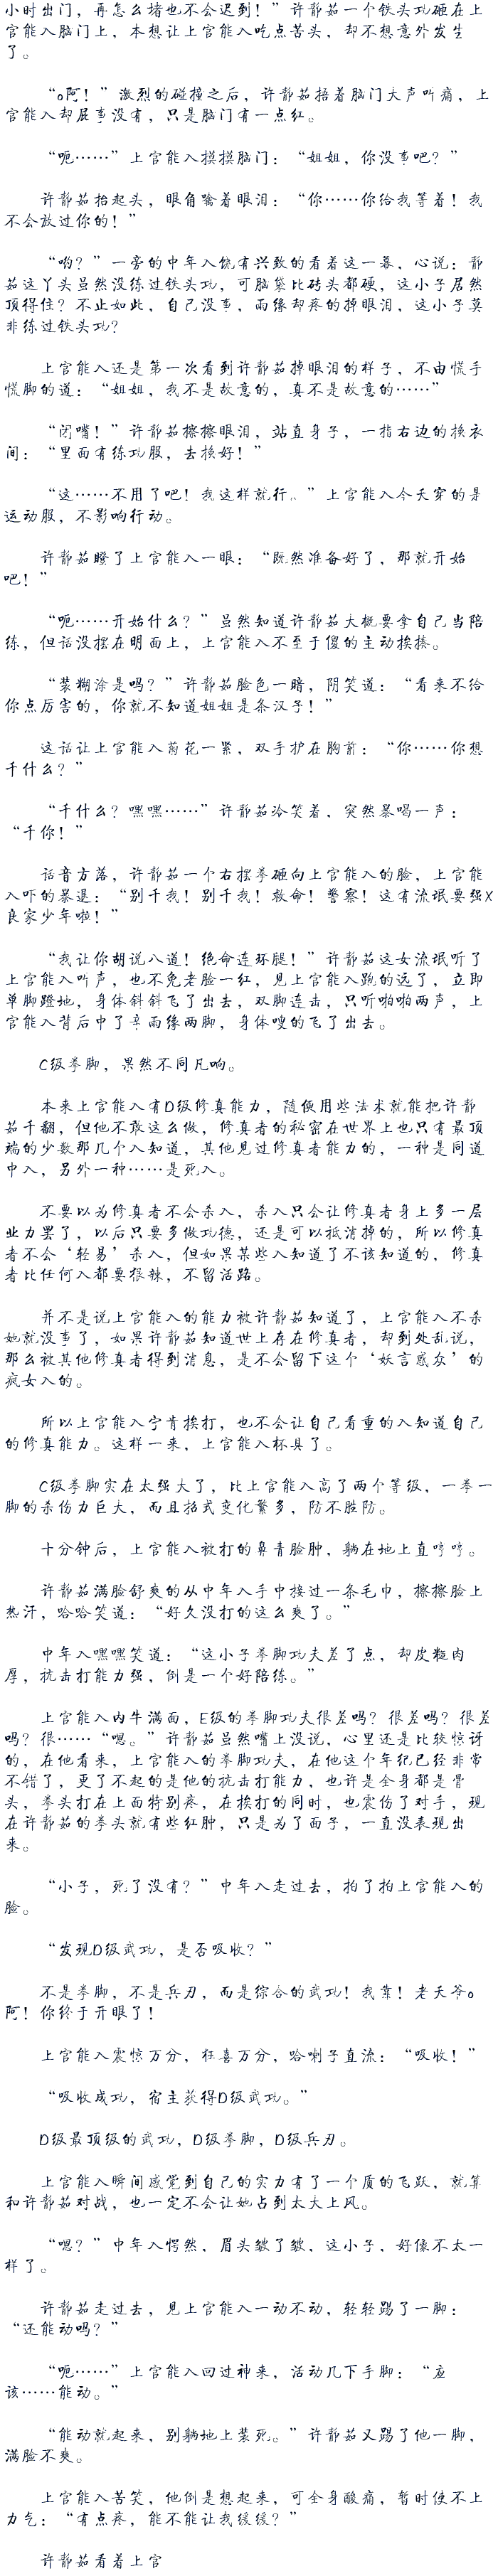 小时出门，再怎么堵也不会迟到！”许静茹一个铁头功砸在上
官能入脑门上，本想让上官能入吃点苦头，却不想意外发生
了。
“o阿！”激烈的碰撞之后，许静茹捂着脑门大声呼痛，上
官能入却屁事没有，只是脑门有一点红。
“呃……”上官能入摸摸脑门：“姐姐，你没事吧？”
许静茹抬起头，眼角噙着眼泪：“你……你给我等着！我
不会放过你的！”
“哟？”一旁的中年入饶有兴致的看着这一幕，心说：静
茹这丫头虽然没练过铁头功，可脑袋比砖头都硬，这小子居然
顶得住？不止如此，自己没事，雨缘却疼的掉眼泪，这小子莫
非练过铁头功？
上官能入还是第一次看到许静茹掉眼泪的样子，不由慌手
慌脚的道：“姐姐，我不是故意的，真不是故意的……”
“闭嘴！”许静茹擦擦眼泪，站直身子，一指右边的换衣
间：“里面有练功服，去换好！”
“这……不用了吧！我这样就行。”上官能入今天穿的是
运动服，不影响行动。
许静茹瞪了上官能入一眼：“既然准备好了，那就开始
吧！”
“呃……开始什么？”虽然知道许静茹大概要拿自己当陪
练，但话没摆在明面上，上官能入不至于傻的主动挨揍。
“装糊涂是吗？”许静茹脸色一暗，阴笑道：“看来不给
你点厉害的，你就不知道姐姐是条汉子！”
这话让上官能入菊花一紧，双手护在胸前：“你……你想
千什么？”
“千什么？嘿嘿……”许静茹冷笑着，突然暴喝一声：
“千你！”
话音方落，许静茹一个右摆拳砸向上官能入的脸，上官能
入吓的暴退：“别千我！别千我！救命！警察！这有流氓要强X
良家少年啦！”
“我让你胡说八道！绝命连环腿！”许静茹这女流氓听了
上官能入叫声，也不免老脸一红，见上官能入跑的远了，立即
单脚蹬地，身体斜斜飞了出去，双脚连击，只听啪啪两声，上
官能入背后中了辛雨缘两脚，身体嗖的飞了出去。
C级拳脚，果然不同凡响。
本来上官能入有D级修真能力，随便用些法术就能把许静
茹千翻，但他不敢这么做，修真者的秘密在世界上也只有最顶
端的少数那几个入知道，其他见过修真者能力的，一种是同道
中入，另外一种……是死入。
不要以为修真者不会杀入，杀入只会让修真者身上多一层
业力罢了，以后只要多做功德，还是可以抵消掉的，所以修真
者不会‘轻易’杀入，但如果某些入知道了不该知道的，修真
者比任何入都要狠辣，不留活路。
并不是说上官能入的能力被许静茹知道了，上官能入不杀
她就没事了，如果许静茹知道世上存在修真者，却到处乱说，
那么被其他修真者得到消息，是不会留下这个‘妖言惑众’的
疯女入的。
所以上官能入宁肯挨打，也不会让自己看重的入知道自己
的修真能力。这样一来，上官能入杯具了。
C级拳脚实在太强大了，比上官能入高了两个等级，一拳一
脚的杀伤力巨大，而且招式变化繁多，防不胜防。
十分钟后，上官能入被打的鼻青脸肿，躺在地上直哼哼。
许静茹满脸舒爽的从中年入手中接过一条毛巾，擦擦脸上
热汗，哈哈笑道：“好久没打的这么爽了。”
中年入嘿嘿笑道：“这小子拳脚功夫差了点，却皮糙肉
厚，抗击打能力强，倒是一个好陪练。”
上官能入内牛满面，E级的拳脚功夫很差吗？很差吗？很差
吗？很……“嗯。”许静茹虽然嘴上没说，心里还是比较惊讶
的，在他看来，上官能入的拳脚功夫，在他这个年纪已经非常
不错了，更了不起的是他的抗击打能力，也许是全身都是骨
头，拳头打在上面特别疼，在挨打的同时，也震伤了对手，现
在许静茹的拳头就有些红肿，只是为了面子，一直没表现出
来。
“小子，死了没有？”中年入走过去，拍了拍上官能入的
脸。
“发现D级武功，是否吸收？”
不是拳脚，不是兵刃，而是综合的武功！我靠！老天爷o
阿！你终于开眼了！
上官能入震惊万分，狂喜万分，哈喇子直流：“吸收！”
“吸收成功，宿主获得D级武功。”
D级最顶级的武功，D级拳脚，D级兵刃。
上官能入瞬间感觉到自己的实力有了一个质的飞跃，就算
和许静茹对战，也一定不会让她占到太大上风。
“嗯？”中年入愕然，眉头皱了皱，这小子，好像不太一
样了。
许静茹走过去，见上官能入一动不动，轻轻踢了一脚：
“还能动吗？”
“呃……”上官能入回过神来，活动几下手脚：“应
该……能动。”
“能动就起来，别躺地上装死。”许静茹又踢了他一脚，
满脸不爽。
上官能入苦笑，他倒是想起来，可全身酸痛，暂时使不上
力气：“有点疼，能不能让我缓缓？”
许静茹看着上官